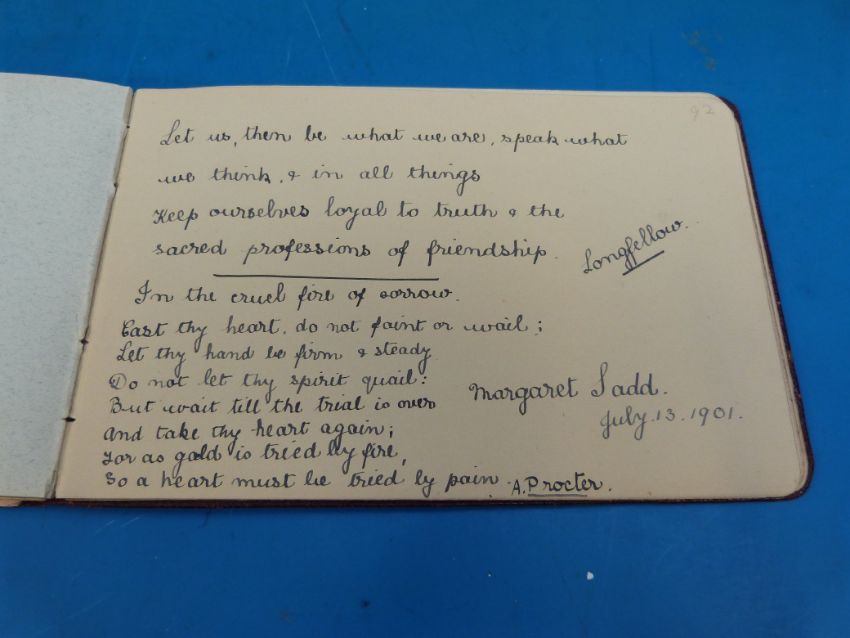 92
Let us, then be what we are, speak what
we think, & in all things
Keep ourselves loyal to truth & the
sacred professions of friendship.
Longfellow.
In the cruel fire of sorrow.
Cast thy heart, do not faint or wail;
Let thy hand be firm & steady
Do not let thy spirit quail:
But wait till the trial is over
And take thy heart again;
For as gold is tried by fire,
So a heart must be tried by pain.
A. Procter.
Margaret Sadd.
July. 13. 1901.